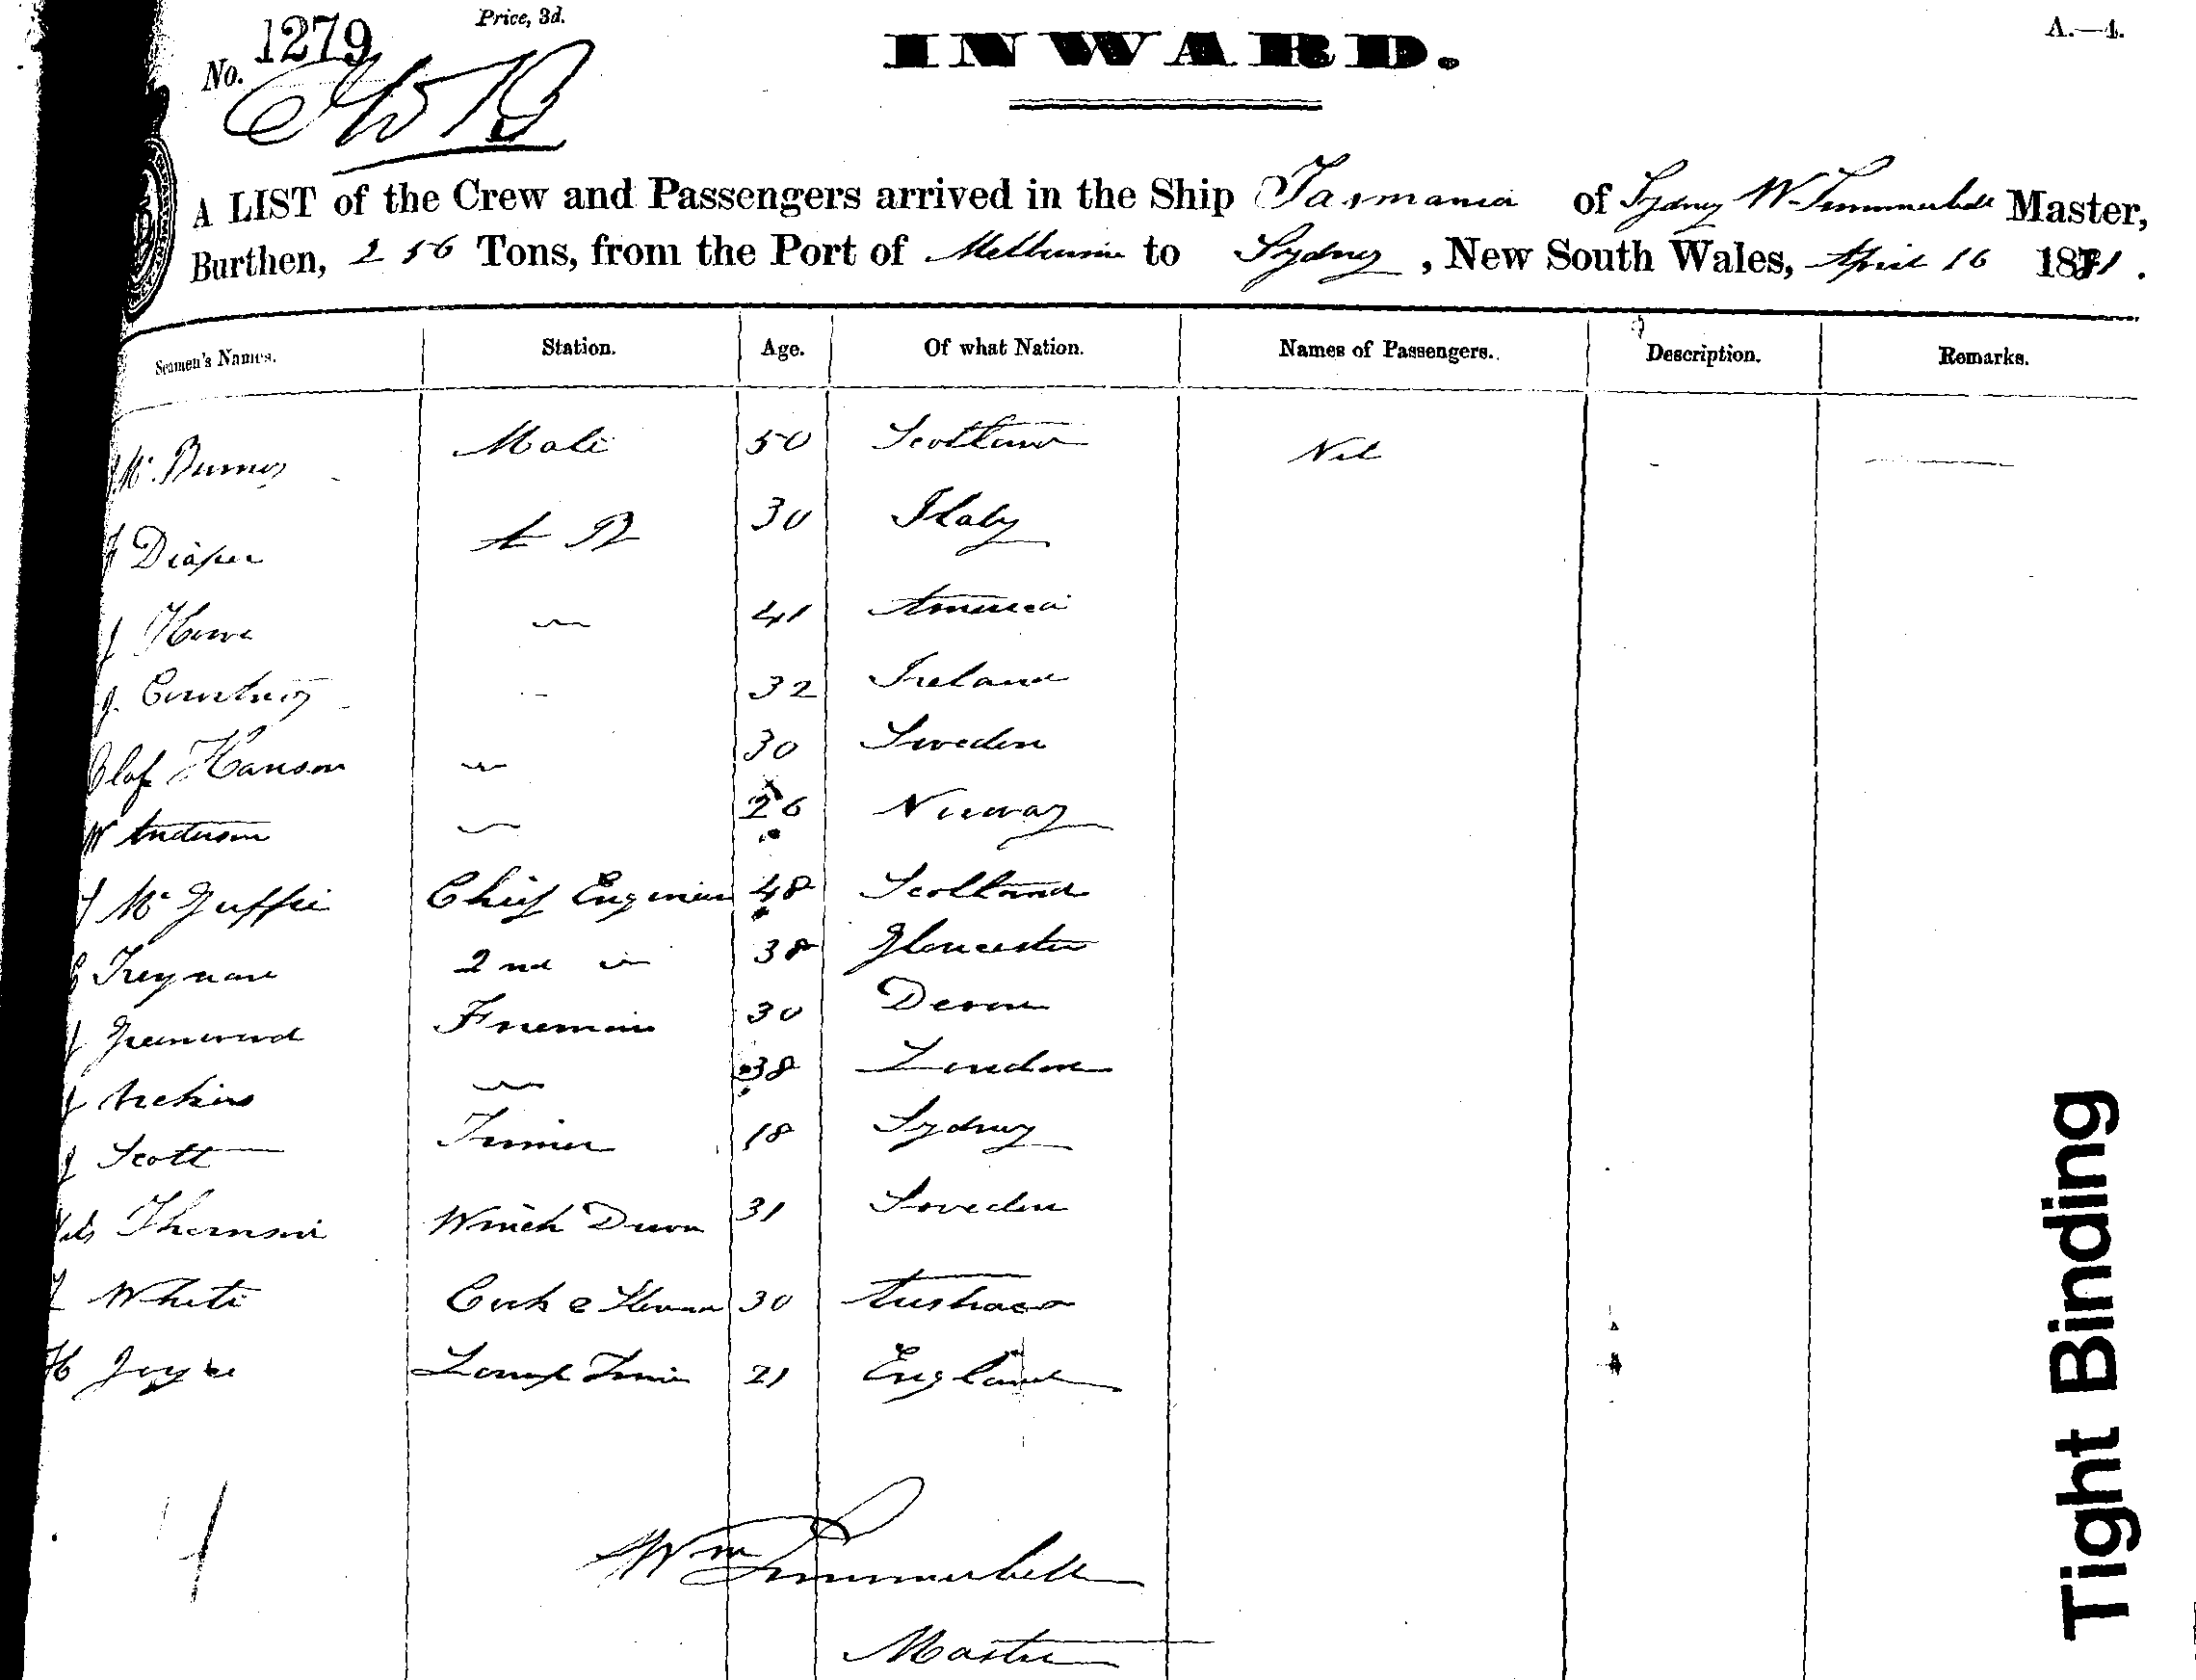 No. 1279 Price, 3d. A.—4.
INWARD.
A LIST of the Crew and Passengers arrived in the Ship Tasmania of Sydney W Summerbell Master,
Burthen, 256 Tons, from the Port of Melbourne to Sydney, New South Wales, April 16 1881.
Seamen's Names. Station. Age. Of what Nation. Names of Passengers. Description. Remarks.
Mate 50 Scotland Nil
Diaper A B 30 Italy
J Howe 41 America
J Courtney 32 Ireland
Olaf Hanson 30 Sweden
W Anderson 26 Norway
J McGuffie Chief Engineer 48 Scotland
2nd 38 Gloucester
J Greenwood Fireman 30 Devon
J 38 London
J Scott Trimmer 18 Sydney
Winch Driver 31 Sweden
White Cook & 30
H Joyce Lamp Trimmer 21 England
Wm Summerbell
Master
Tight Binding